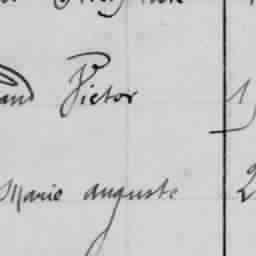 and Victor 1
Marie auguste 2